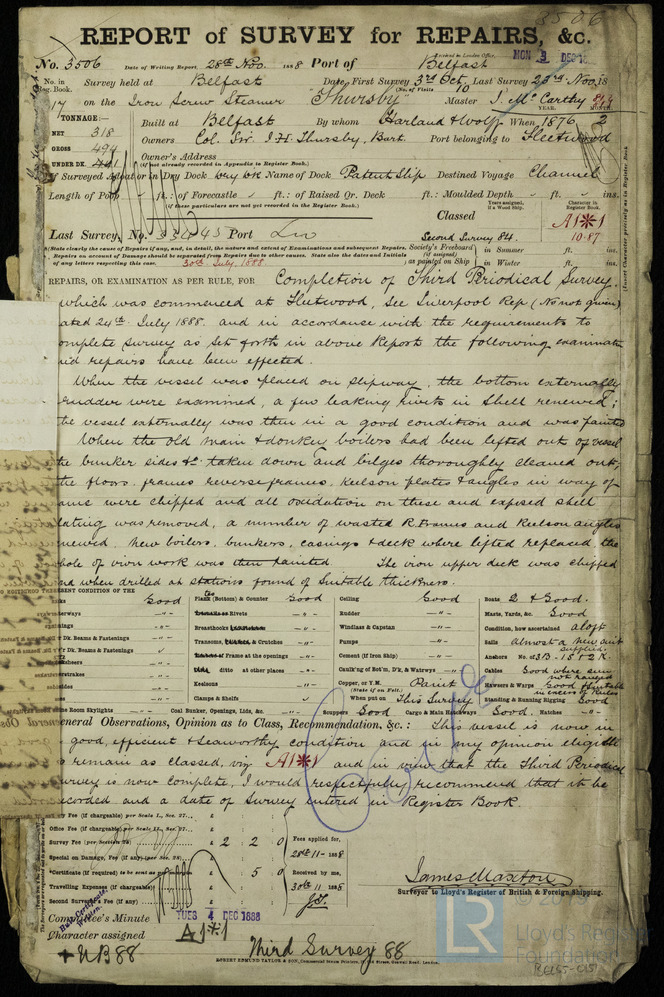 3506
REPORT of SURVEY for REPAIRS, &c.
Received in London Office,
No. 3506 Date of Writing Report 28th Nov. 1888 Port of Belfast MON 3 DEC 18
No. in Reg. Book. Survey held at Belfast Date, First Survey 3rd Oct, Last Survey 23rd Nov. 18
(No. of Visits 10
17 on the Iron Screw Steamer "Thursby" Master J. McCarthy
YEAR. MONTH.
TONNAGE:— Built at Belfast By whom Harland & Wolff When 1876 2
NET 318
GROSS 494 Owners Col. Sir. J. H. Thursby, Bart. Port belonging to Fleetwood
UNDER DK. Owners' Address
(if not already recorded in Appendix to Register Book.)
If Surveyed Afloat or in Dry Dock Name of Dock Patent Slip Destined Voyage Channel
Length of Poop ft.: of Forecastle ft.: of Raised Qr. Deck ft.: Moulded Depth ft. ins.
(if these particulars are not yet recorded in the Register Book.)
Years assigned, if a Wood Ship. Character in Register Book.
Classed A1*1
10-87
Last Survey, No. Port Liv Second Survey 84.
Society's Freeboard (if assigned) as painted on Ship in Summer ft. ins.
in Winter ft. ins.
(State clearly the cause of Repairs if any, and, in detail, the nature and extent of Examinations and subsequent Repairs.
Repairs on account of Damage should be separated from Repairs due to other causes. State also the dates and Initials
of any letters respecting this case. 30th July 1888
REPAIRS, OR EXAMINATION AS PER RULE, FOR Completion of Third Periodical Survey.
which was commenced at Fleetwood, see Liverpool Rep (No not given)
ated 24th July 1888. and in accordance with the requirements to
omplete survey as set forth in above Report the following examinate
nd repairs have been effected.
When the vessel was placed on slipway, the bottom externally
rudder were examined, a few leaking rivets in Shell renewed;
he vessel externally was then in a good condition and was painted
When the old main & donkey boilers had been lifted out of vessel
he bunker sides &c taken down and bilges thoroughly cleaned out,
he floors. frames reverse frames, keelson plates & angles in way of
ame were chipped and all oxidation on these and exposed shell
lating was removed, a number of wasted R. Frames and Keelson angles
newed. New boilers, bunkers, casings & deck where lifted replaced the
hole of iron work was then painted The iron upper deck was chipped
nd when drilled at stations found of suitable thickness.
Good
Plank (Bottom) & Counter Good
Rivets
Breasthooks
Transoms, & Crutches
Frame at the openings
ditto at other places
Keelsons
Clamps & Shelfs
Dk. Beams & Fastenings
Dk. Beams & Fastenings
Ceiling Good
Rudder
Windlass & Capstan
Pumps
Cement (if Iron Ship)
Caulk'ng of Bot'm, D'k, & Waterw'ys
Copper, or Y.M. Paint
(State if on Felt.)
When put on This Survey
Boats 2 & Good.
Masts, Yards, &c. Good
Condition, how ascertained aloft
Sails almost a new suit
supplied.
Anchors No. 3B. 1S & 2K.
Cables Good where seen
not ranged
Hawsers & Warps Good
Standing & Running Rigging Good
Room Skylights Coal Bunker, Openings, Lids, &c. Scuppers Good Cargo & Main Hatchways Good Hatches
General Observations, Opinion as to Class, Recommendation, &c.: This vessel is now in
good, efficient & seaworthy condition and in my opinion eligible
o remain as classed, viz A1*1 and in view that the Third Periodical
urvey is now complete, I would respectfully recommend that it be
ecorded and a date of Survey entered in Register Book.
y Fee (if chargeable) per Scale I., Sec. 27... £
Office Fee (if chargeable) per Scale II., Sec. 27... £
Survey Fee (per Section 28) £ 2 : 2 : 0 Fees applied for,
28th 11- 1888
Special on Damage, Fee (if any) (per Sec. 28) £
*Certificate (if required) to be sent as per £ : 5 : 0 Received by me,
Travelling Expenses (if chargeable) £ 30th 11 1888
Second Survey Fee (if any) £
James Maxton
Surveyor to Lloyd's Register of British & Foreign Shipping.
Committee's Minute TUES 4 DEC 1888
Character assigned A1*1
+ NB 88 Third Survey 88
LR
Lloyd's Register
Foundation